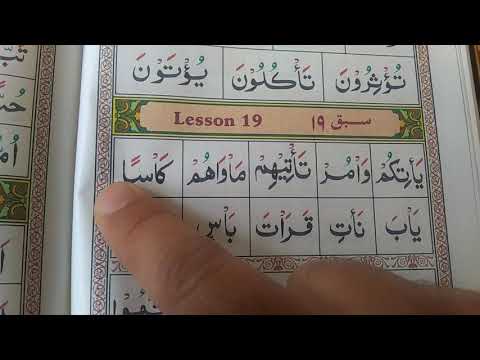 تُؤْثِرُونَ تَأْكُلُونَ يُؤْتَوْنَ
Lesson 19 سبق ١٩
يَأْتِكُمْ وَأْمُرْ تَأْتِيْهِمْ مَأْوَاهُمْ كَأْسًا
يَأْبَ نَأْتِ قَرَأْتَ بَأْسٍ